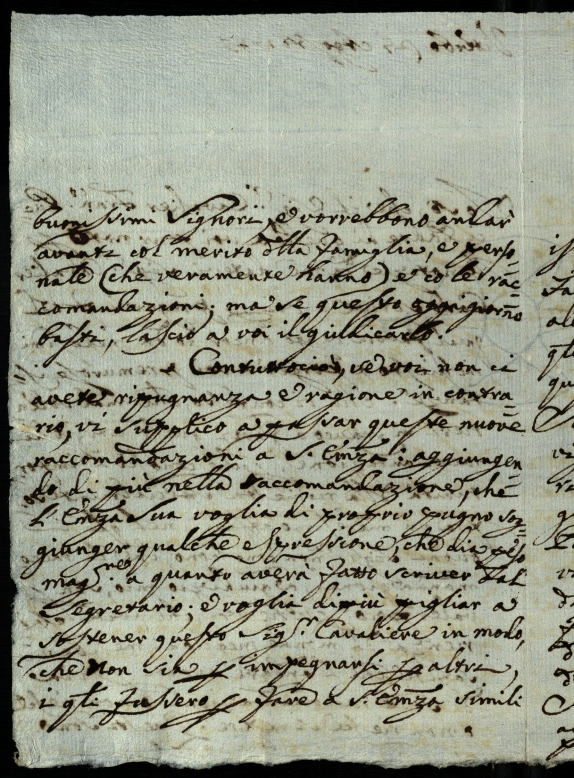 buonissimi Signori, e vorrebbono andar
avanti col merito dlla famiglia, e perso
nale (che veramente hanno) e co le rac=
comandazioni; ma se questo oggigiorno
basti, lascio a voi il giudicarlo.
Contuttociò, se voi non ci
avete ripugnanza e ragione in contra=
rio, vi supplico a passar queste nuove
raccomandazioni a S. Emza: aggiungen
do di più nella raccomandazione, che
l'Emza Sua voglia di proprio pugno sog=
giunger qualche espressione, che dia peso
magre a quanto averà fatto scriver dal
Segretario; e voglia di più pigliar a
sostener questo Sigr. Cavaliere in modo,
che non sia p impegnarsi p altri,
i qli fussero p fare a S. Emza simili